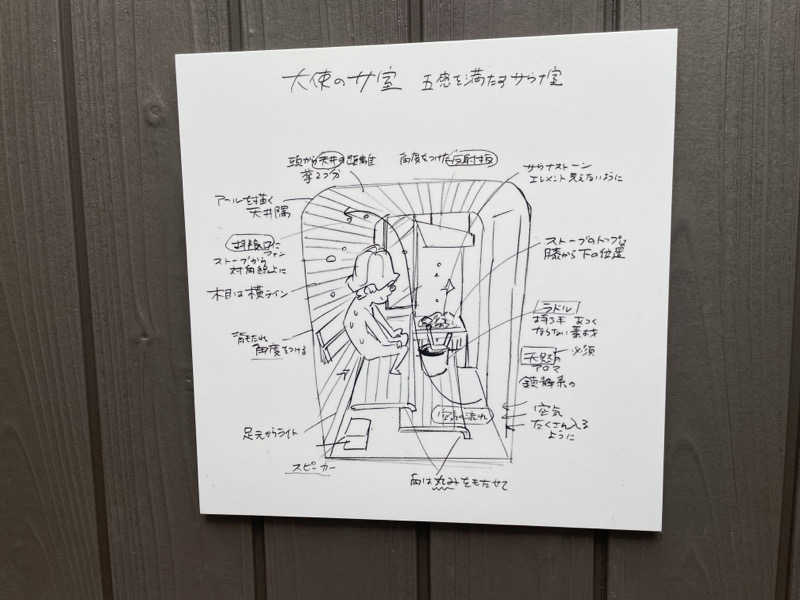 大使のサ室 五感を満たすサウナ室
頭から天井の距離
拳2つ分
角度をつけた反射板
サウナストーン
エレメント見えないように
アールを描く
天井隅
排気口に
ファン
ストーブから
対角線上に
木目は横ライン
背もたれ
角度をつける
足元からライト
スピーカー
ストーブのトップは
膝から下の位置
ラドル
持ち手 あつく
ならない素材
天然の
アロマ
必須
鎮静系の
空気の流れ
空気
たくさん入る
ように
角は丸みをもたせて